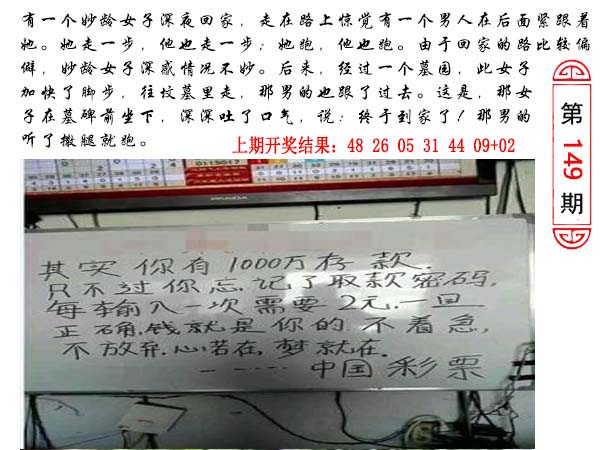 有一个妙龄女子深夜回家，走在路上惊觉有一个男人在后面紧跟着
她。她走一步，他也走一步；她跑，他也跑。由于回家的路比较偏
僻，妙龄女子深感情况不妙。后来，经过一个墓园，此女子
加快了脚步，往坟墓里走，那男的也跟了过去。这是，那女
子在墓碑前坐下，深深吐了口气，说：终于到家了！那男的
听了撒腿就跑。
上期开奖结果：48 26 05 31 44 09+02
第
149
期
0115017
PANDA
其实你有1000万存款.
只不过你忘记了取款密码,
每输入一次需要2元.一旦
正确.钱就是你的不着急,
不放弃.心若在,梦就在.
-----中国彩票